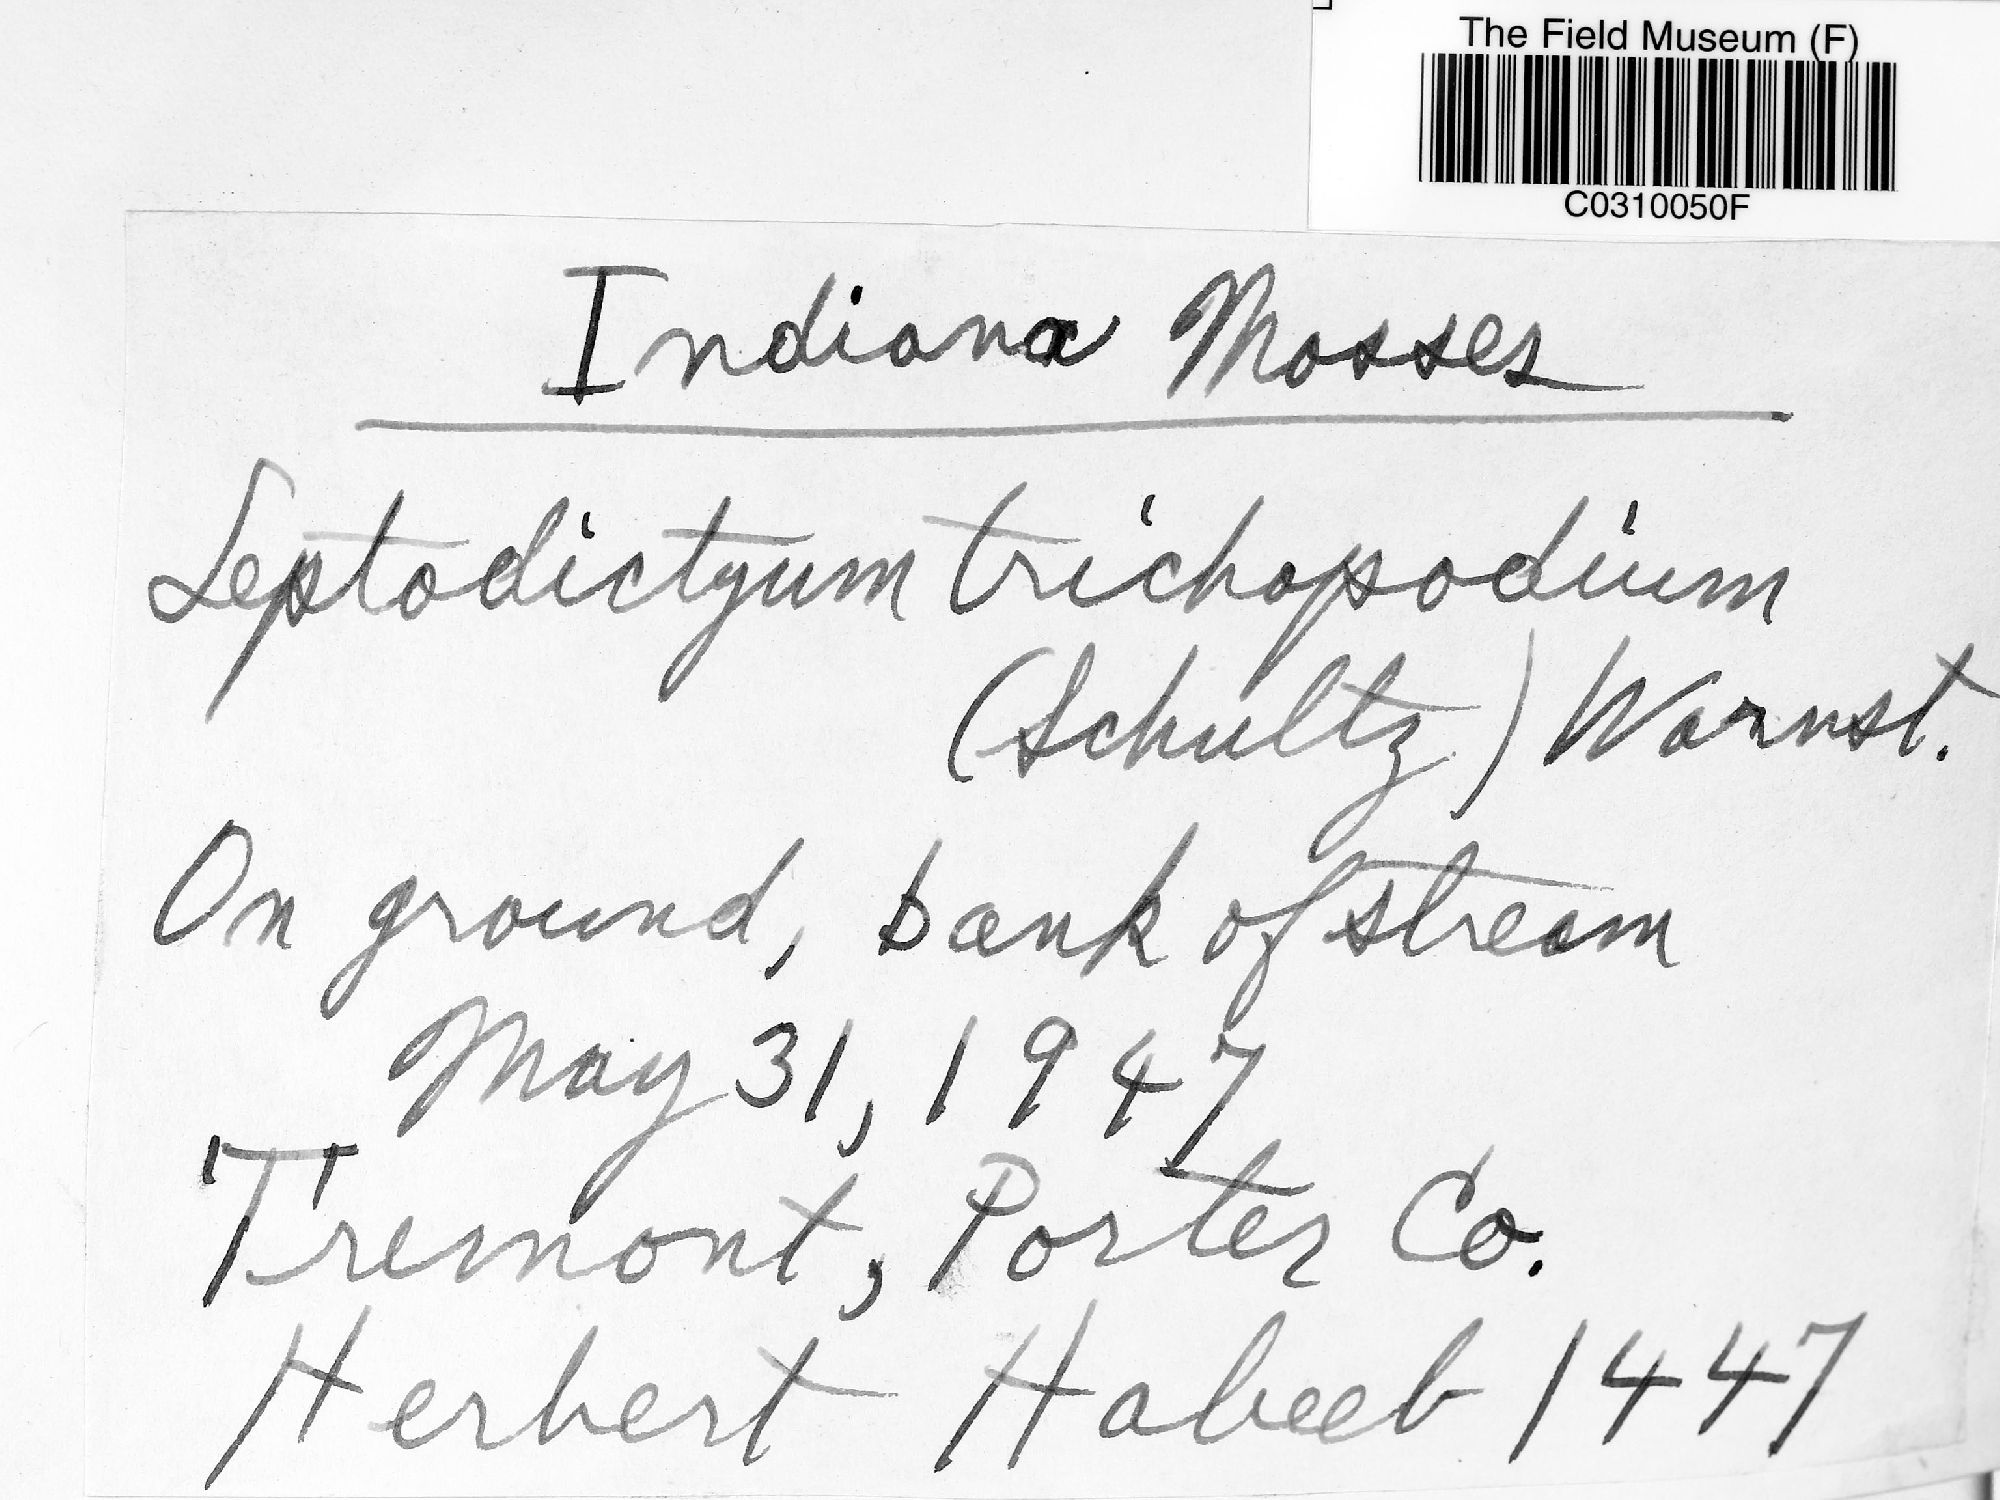 The Field Museum (F)
C0310050F
Indiana Mosses
Leptodictyum trichopodium
(Schultz) Warnst.
On ground, bank of stream
May 31, 1947
Tremont, Porter Co.
Herbert Habeeb 1447